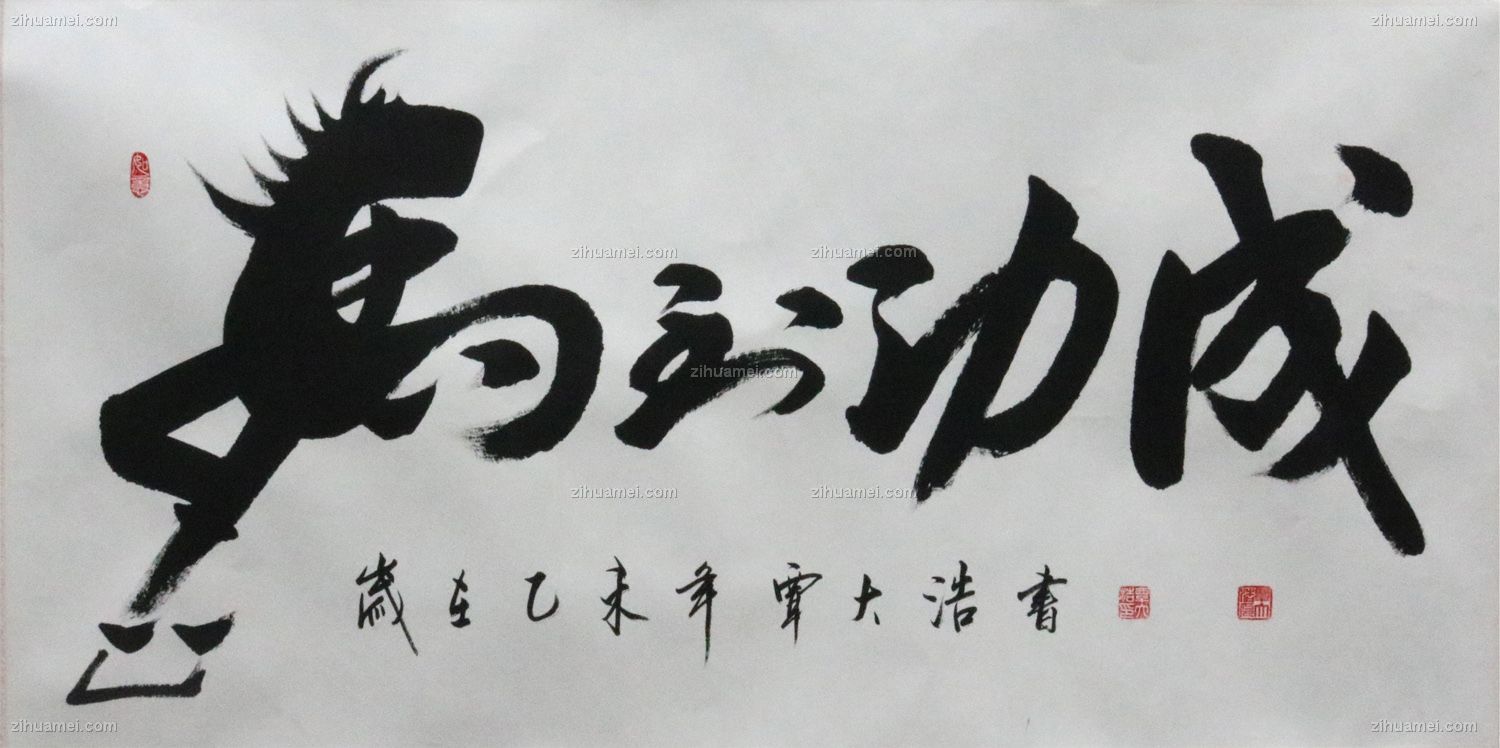 zihuamei.com zihuamei.com
如意
馬到功成
zihuamei.com zihuamei.com
zihuamei.com
zihuamei.com zihuamei.com
歲在乙未年覃大浩書
zihuamei.com zihuamei.com